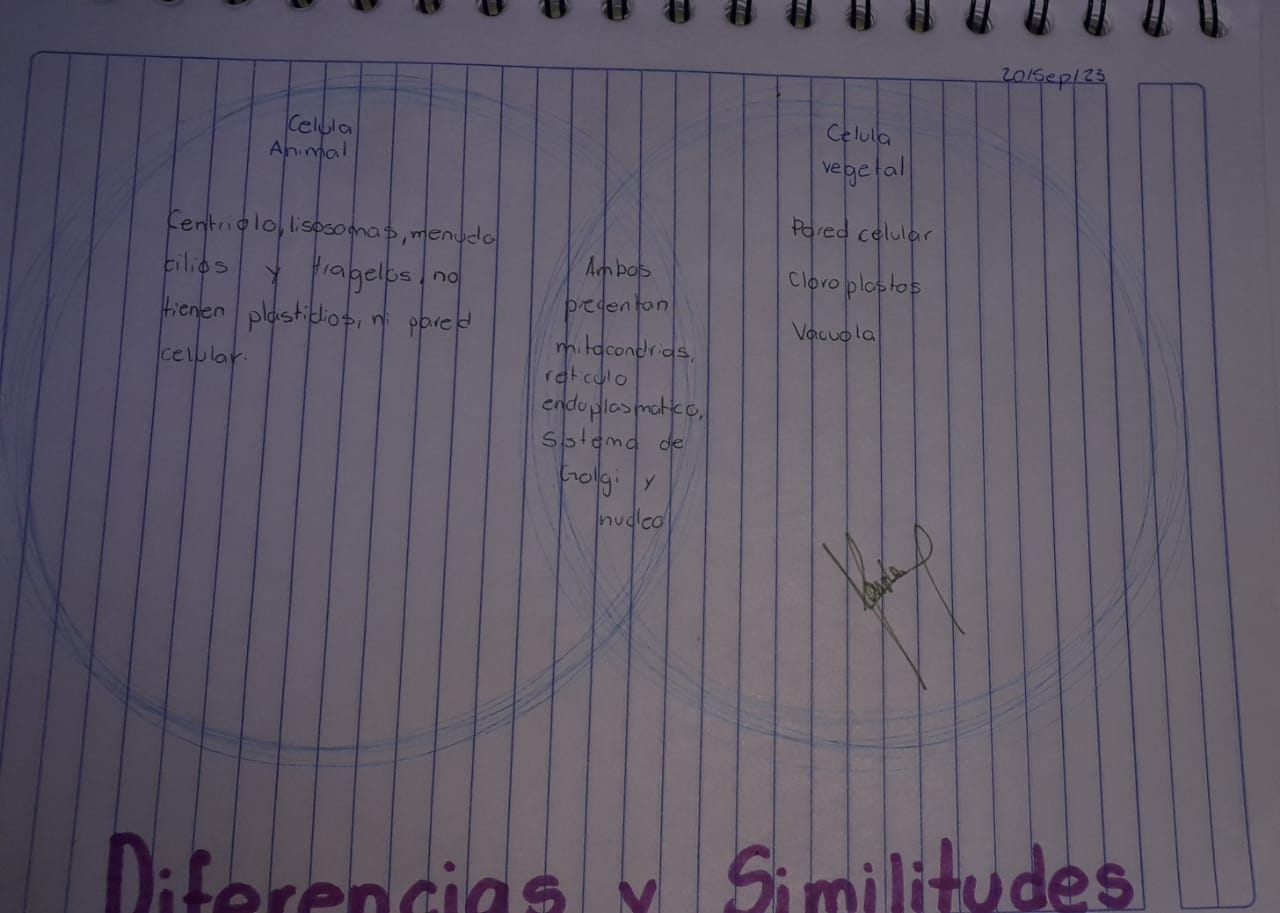 20/Sep/23
Celula
Animal
Centriolo, lisosomas, menudo
cilios y flagelos, no
tienen plastidios, ni pared
celular.
Ambos
presentan
mitocondrias,
reticulo
endoplasmatico,
sistema de
Golgi y
nucleo
Celula
vegetal
Pared celular
Cloroplastos
Vacuola
Diferencias y Similitudes